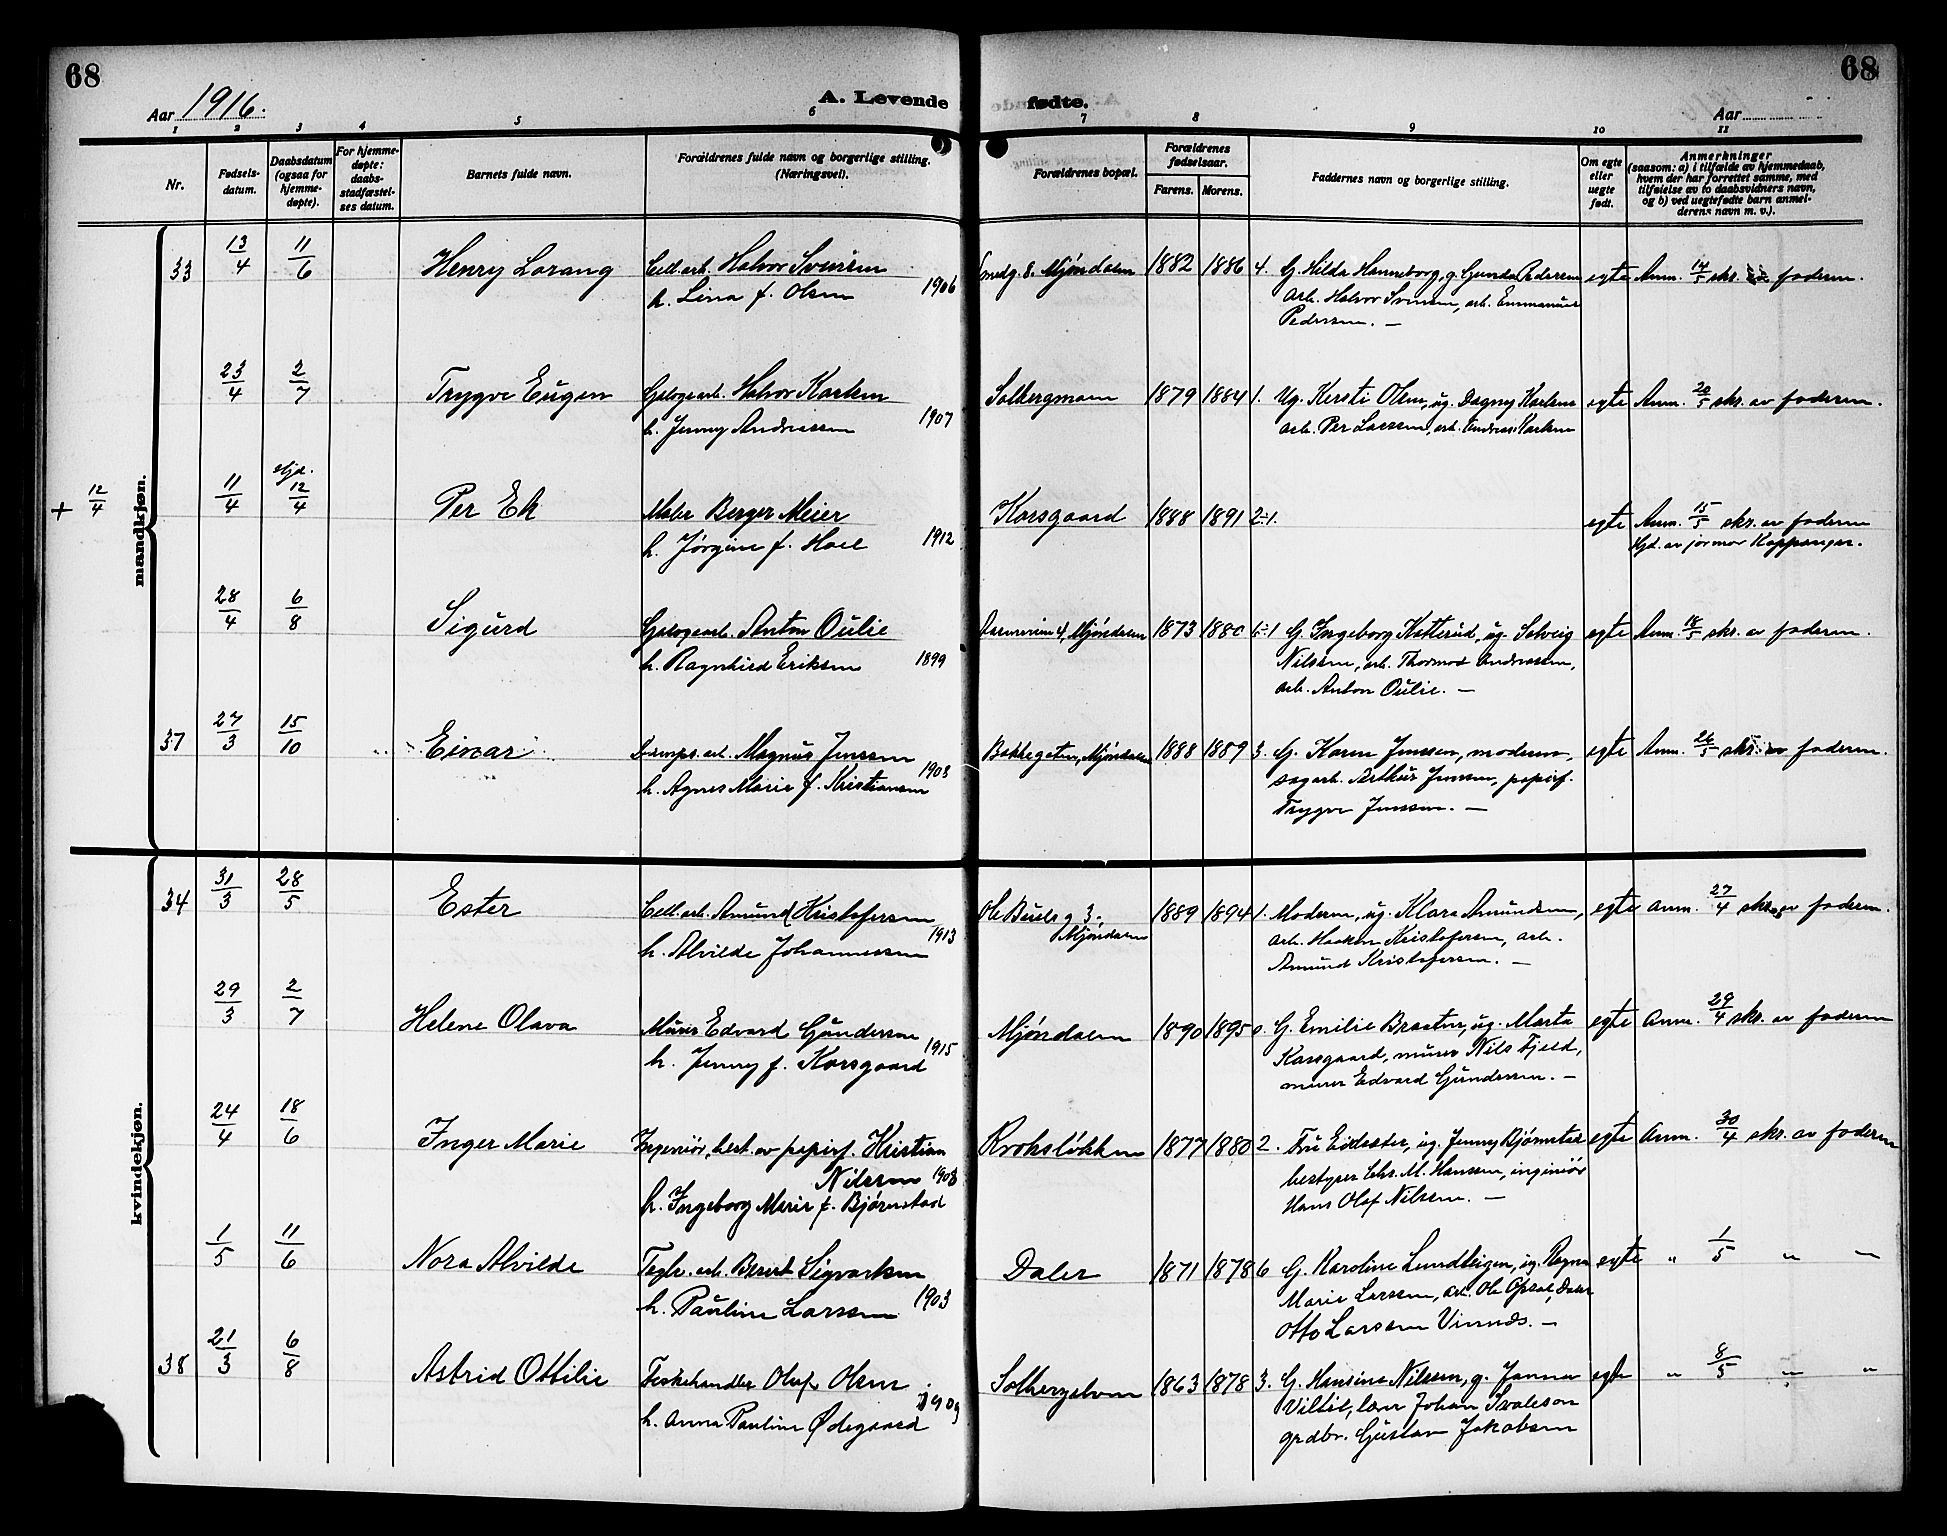 68
68
Aar 1916.
A. Levende
fødte.
Aar
1 2 3 4 5 6 7 8 9 10 11
Nr.
Fødsels-
datum.
Daabsdatum
(ogsaa for
hjemme-
døpte).
For hjemme-
døpte:
daabs-
stadfæstel-
ses datum.
Barnets fulde navn.
Forældrenes fulde navn og borgerlige stilling.
(Næringsvei).
Forældrenes bopæl.
Forældrenes
fødselsaar.
Farens. Morens.
Faddernes navn og borgerlige stilling.
Om egte
eller
uegte
født.
Anmerkninger
(saasom: a) i tilfælde av hjemmedaab,
hvem der har forrettet samme, med
tilføielse av to daabsvidners navn,
og b) ved uegtefødte barn anmel-
derens navn m. v.).
mandkjøn.
33 13/4 11/6 Henry Lorang Cell.arb. Halvor Svensen Mjøndalen 1882 1886 4. G. Hilda Hanneborg, g. Gunda Pedersen egte Anm. 14/5 skr. faderen.
h. Lina f. Olsen 1906 arb. Halvor Svensen, arb. Emmanuel
Pedersen. —
23/4 2/7 Trygve Eugen Halvor Karlsen Solbergmoen 1879 1884 1. Ug. Kersti Olsen, ug. Dagny Karlsen egte Anm. 20/5 skr. av faderen.
h. Jenny Andreassen 1907 arb. Per Larssen, arb. Andreas Karlsen
+ 12/4 11/4 hjd. 12/4 Per Ek Maler Berger Meier Korsgaard 1888 1891 2÷1. egte Anm. 15/5 skr. av faderen
h. Jørgine f. Hoel 1912 Hjd. av jormor Koppangen.
28/4 6/8 Sigurd Anton Oulie 4, Mjøndalen 1873 1880 ÷1 G. Ingeborg Kolterud, ug. Solveig egte Anm. 18/5 skr. av faderen.
h. Ragnhild Eriksen 1899 Nilssen, arb. Thormod Andreassen,
arb. Anton Oulie. —
37 27/3 15/10 Einar arb. Magnus Jenssen Bakkegaten, Mjøndalen 1888 1889 3. G. Karen Jenssen, moderen, egte Anm. 26/5 skr. av faderen.
h. Agnes Marie f. Kristiansen 1908 sagarb. Arthur Jenssen, papirf.
Trygve Jenssen. —
kvindekjøn.
34 31/3 28/5 Ester Cell.arb. Amund Kristofersen Ole Buels g 3. 1889 1894 1. Moderen, ug. Klara Amundsen, egte anm. 27/4 skr. av faderen.
h. Alvilde Johannessen 1913 Mjøndalen arb. Haakon Kristofersen, arb.
Amund Kristofersen. —
29/3 2/7 Helene Olava Murer Edvard Gundersen Mjøndalen 1890 1895 0. G. Emilie Braaten, ug. Marta egte anm. 29/4 skr. av faderen
h. Jenny f. Korsgaard 1915 Korsgaard, murer Nils Fjeld,
murer Edvard Gundersen. —
24/4 18/6 Inger Marie Ingeniør, best. av papirf. Kristian Krokløkken 1877 1880 2. Fru Eidsæter, ug. Jenny Bjørnstad egte Anm. 30/4 skr. av faderen
Nilssen 1908 bestyrer Chr. M. Hansen, ingeniør
h. Ingeborg Marie f. Bjørnstad Hans Olaf Nilssen. —
1/5 11/6 Nora Alvilde Teglv. arb. Berent Sigvartsen Daler 1871 1878 6 G. Karoline Lundteigen, ug. Ragna egte „ 1/5 „ „
h. Pauline Larssen 1903 Marie Larssen, arb. Ole Opsal, Daler
Otto Larssen Vinnæs. —
38 21/3 6/8 Astrid Ottilie Fiskehandler Olaf Olsen Solbergelven 1863 1878 3. G. Hansine Nilssen, g. Janna egte „ 8/5 „ „
h. Anna Pauline Ødegaard 1909 Johan Svalesen
grdbr. Gustav Jakobsen